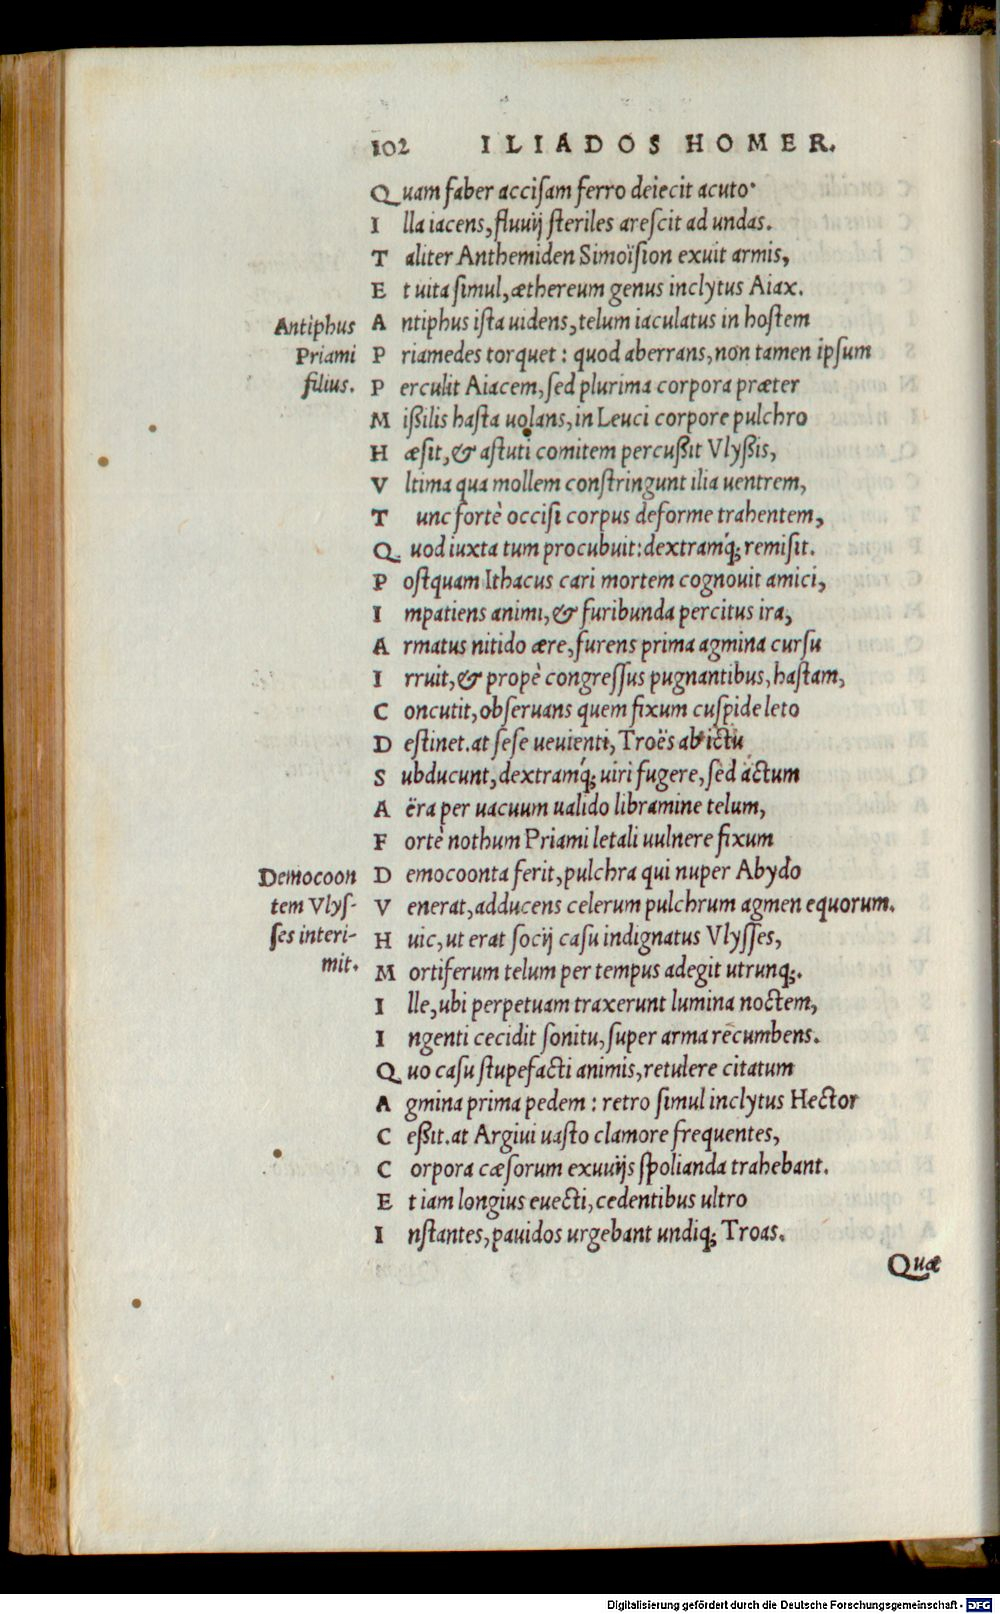 102 ILIADOS HOMER.
Quam faber acciſam ferro deiecit acuto·
Illa iacens, fluuij ſteriles areſcit ad undas.
Taliter Anthemiden Simoïſion exuit armis,
Et uita ſimul, æthereum genus inclytus Aiax.
Antiphus iſta uidens, telum iaculatus in hoſtem
Antiphus
Priami
filius.
Priamedes torquet: quod aberrans, non tamen ipſum
Perculit Aiacem, ſed plurima corpora præter
Mißilis haſta uolans, in Leuci corpore pulchro
Hæſit, & aſtuti comitem percußit Vlyßis,
Vltima qua mollem conſtringunt ilia uentrem,
Tunc fortè occiſi corpus deforme trahentem,
Quod iuxta tum procubuit: dextramq́; remiſit.
Poſtquam Ithacus cari mortem cognouit amici,
Impatiens animi, & furibunda percitus ira,
Armatus nitido ære, furens prima agmina curſu
Irruit, & propè congreſſus pugnantibus, haſtam,
Concutit, obſeruans quem fixum cuſpide leto
Deſtinet. at ſeſe ueuienti, Troës ab ictu
Subducunt, dextramq́; uiri fugere, ſed actum
Aëra per uacuum ualido libramine telum,
Fortè nothum Priami letali uulnere fixum
Democoonta ferit, pulchra qui nuper Abydo
Democoon
tem Vlyſ-
ſes interi-
mit.
Venerat, adducens celerum pulchrum agmen equorum.
Huic, ut erat ſocij caſu indignatus Vlyſſes,
Mortiferum telum per tempus adegit utrunq;.
Ille, ubi perpetuam traxerunt lumina noctem,
Ingenti cecidit ſonitu, ſuper arma recumbens.
Quo caſu ſtupefacti animis, retulere citatum
Agmina prima pedem: retro ſimul inclytus Hector
Ceßit. at Argiui uaſto clamore frequentes,
Corpora cæſorum exuuijs ſpolianda trahebant.
Et iam longius euecti, cedentibus ultro
Inſtantes, pauidos urgebant undiq; Troas.
Quæ
Digitalisierung gefördert durch die Deutsche Forschungsgemeinschaft - DFG